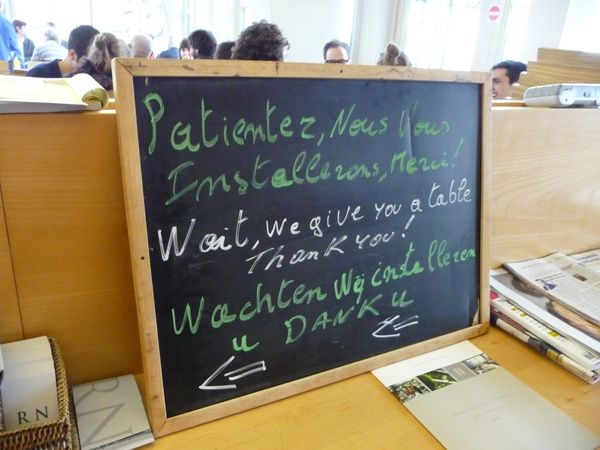 Patientez, Nous Vous
Installerons, Merci!
Wait, we give you a table
Thank you!
Wachten Wij installeren
u DANK u
RN
RN